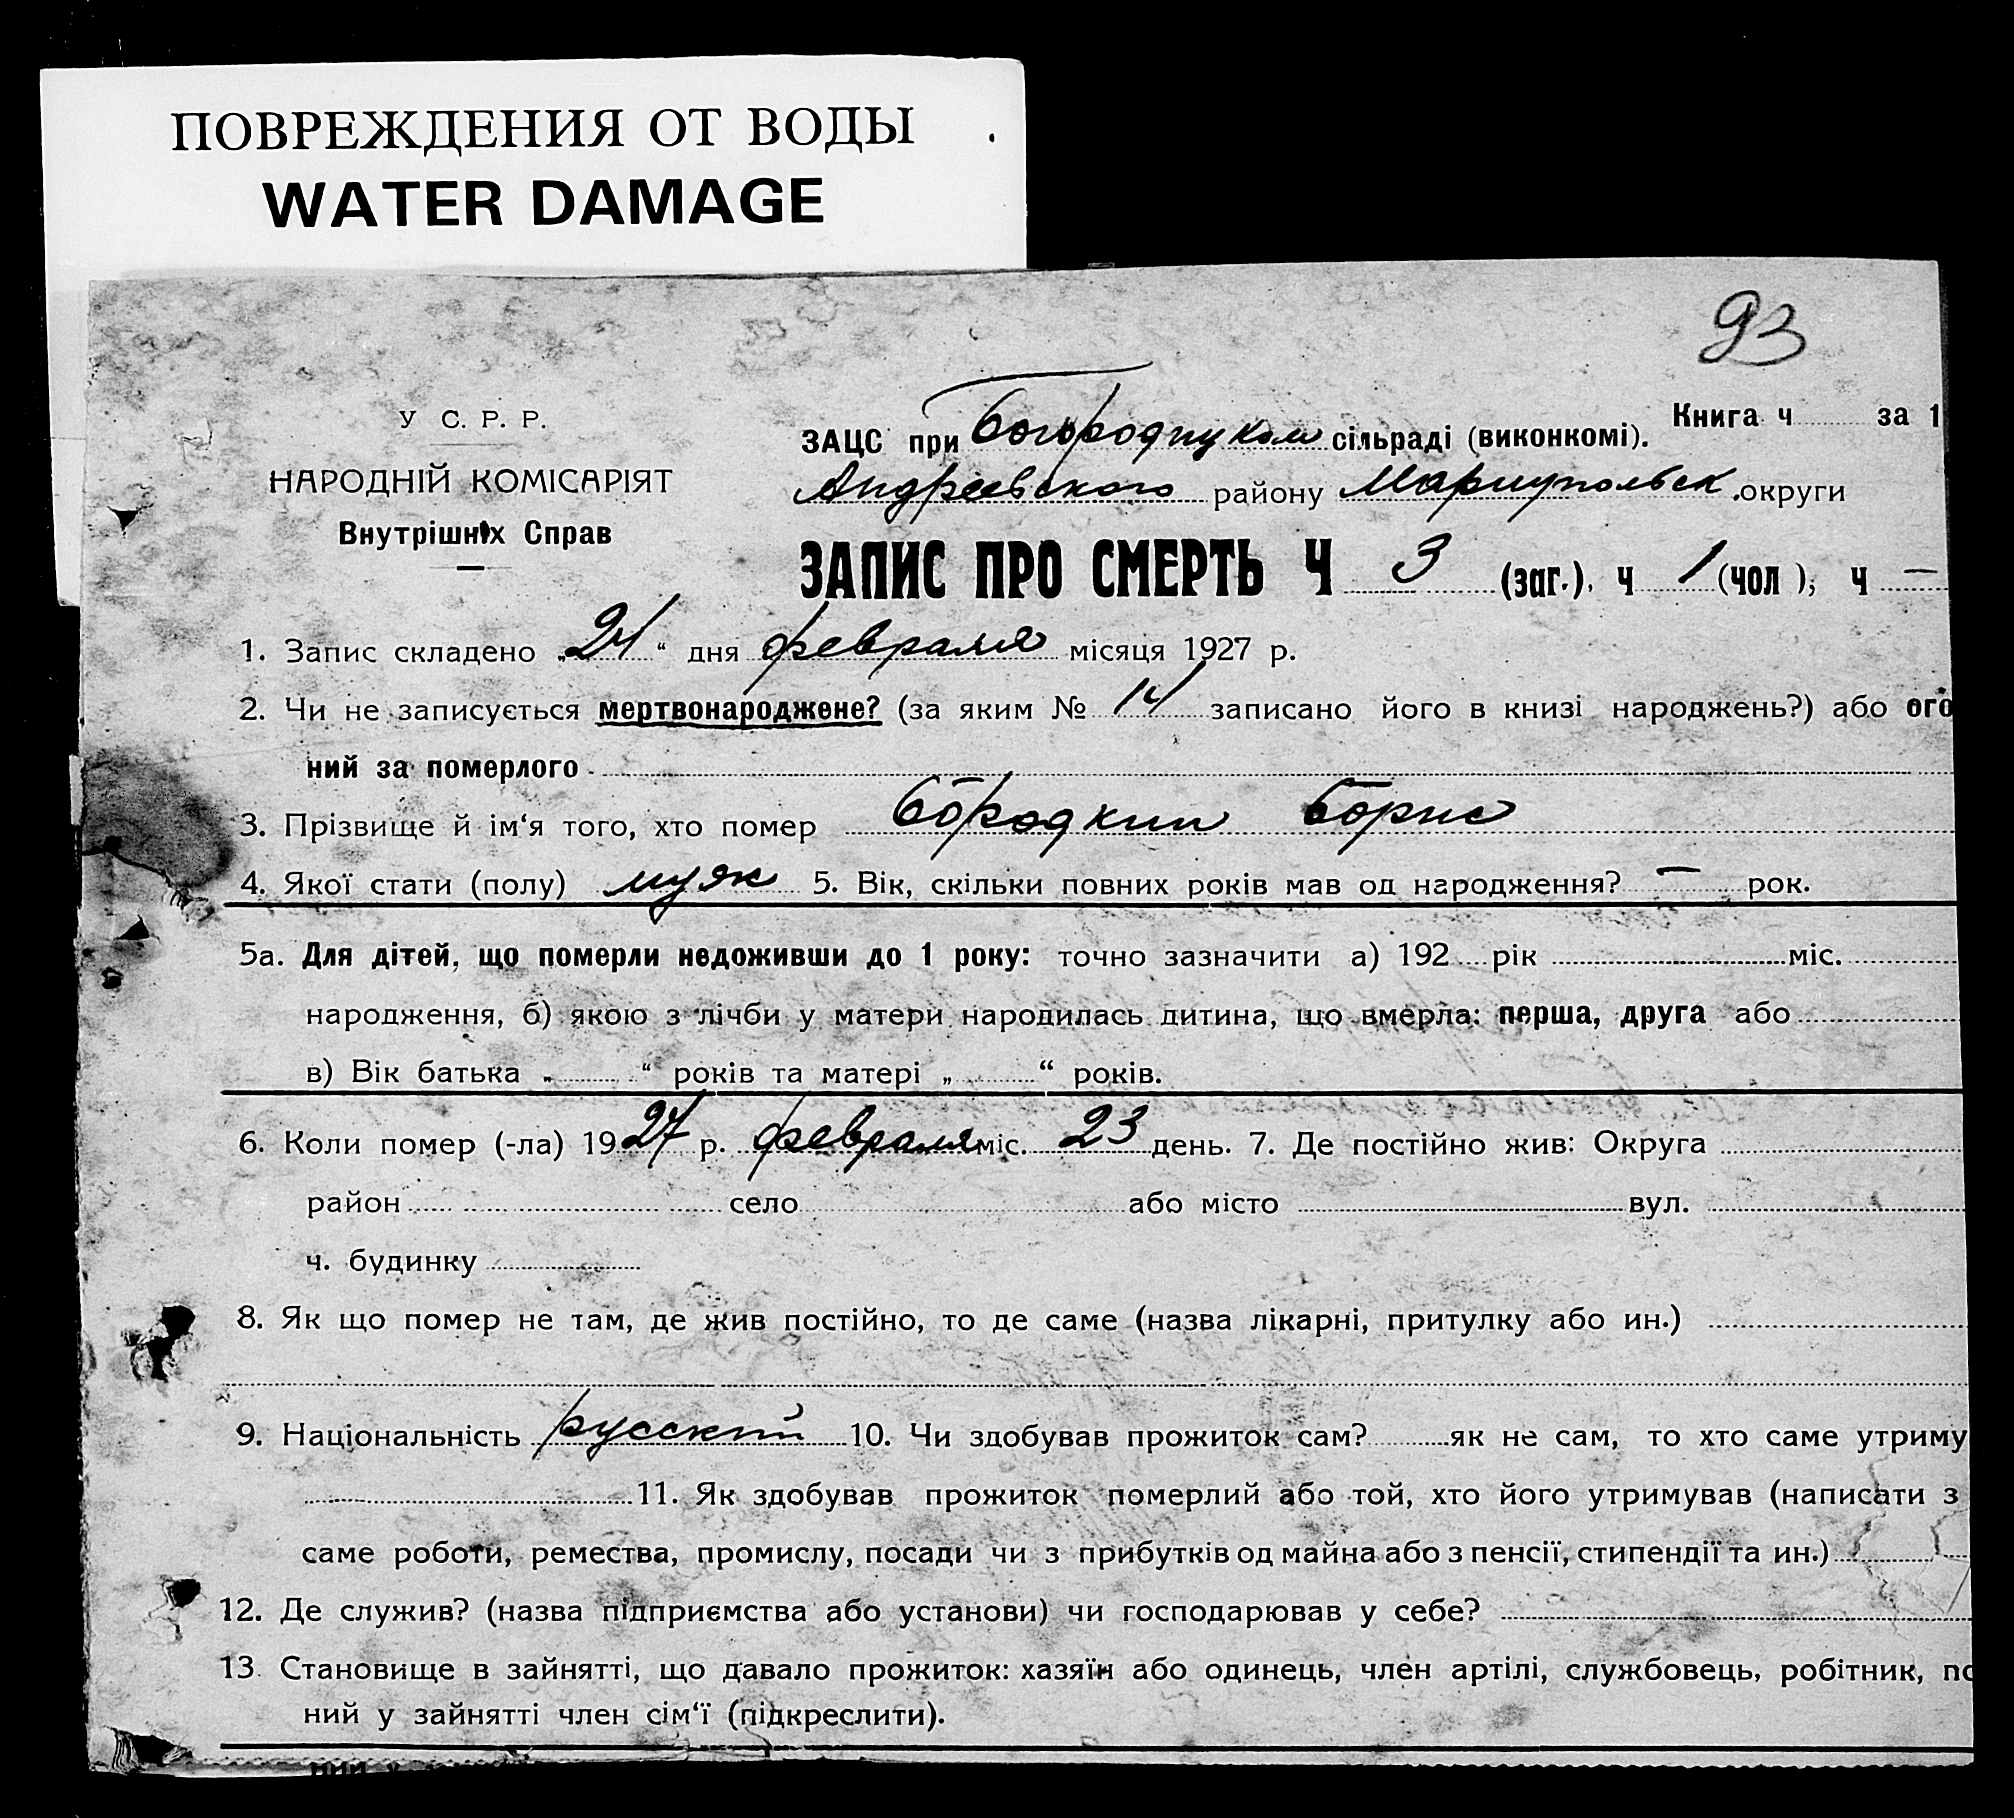 ПОВРЕЖДЕНИЯ ОТ ВОДЫ
WATER DAMAGE
93
У С. Р. Р.
НАРОДНІЙ КОМІСАРІЯТ
Внутрішніх Справ
Книга ч за 1
ЗАЦС при сільраді (виконкомі).
Андреевского району Мариупольск. округи
ЗАПИС ПРО СМЕРТЬ Ч 3 (заг.). ч 1 (чол ); ч —
1. Запис складено „ “ дня февраля місяця 1927 р.
2. Чи не записується мертвонароджене? (за яким № 14 записано його в книзі народжень?) або ого
ний за померлого
3. Прізвище й ім‘я того, хто помер Бородкин Борис
4. Якої стати (полу) муж 5. Вік, скільки повних років мав од народження? — рок.
5а. Для дітей, що померли недоживши до 1 року: точно зазначити а) 192 рік міс.
народження, б) якою з лічби у матери народилась дитина, що вмерла: перша, друга або
в) Вік батька „ “ років та матері „ “ років.
6. Коли помер (-ла) 1927 р. февраля міс. 23 день. 7. Де постійно жив: Округа
район село або місто вул.
ч. будинку
8. Як що помер не там, де жив постійно, то де саме (назва лікарні, притулку або ин.)
9. Національність русский 10. Чи здобував прожиток сам? як не сам, то хто саме утриму
11. Як здобував прожиток померлий або той, хто його утримував (написати з
саме роботи, ремества, промислу, посади чи з прибутків од майна або з пенсії, стипендії та ин.)
12. Де служив? (назва підприємства або установи) чи господарював у себе?
13. Становище в зайнятті, що давало прожиток: хазяїн або одинець, член артілі, службовець, робітник, по
ний у зайнятті член сім‘ї (підкреслити).